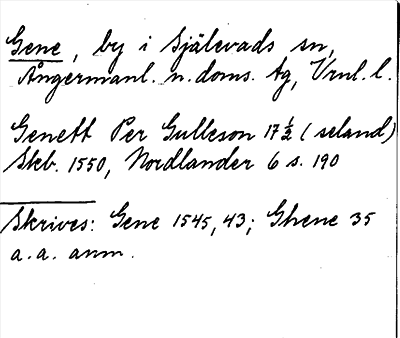 Gene, by i Själevads sn,
Ångermanl. n. doms. tg, Vrnl. l.
Genett Per Gulleson 17 ½ (seland)
Skb. 1550, Nordlander 6 s. 190
Skrives: Gene 1545, 43; Ghene 35
a. a. anm.